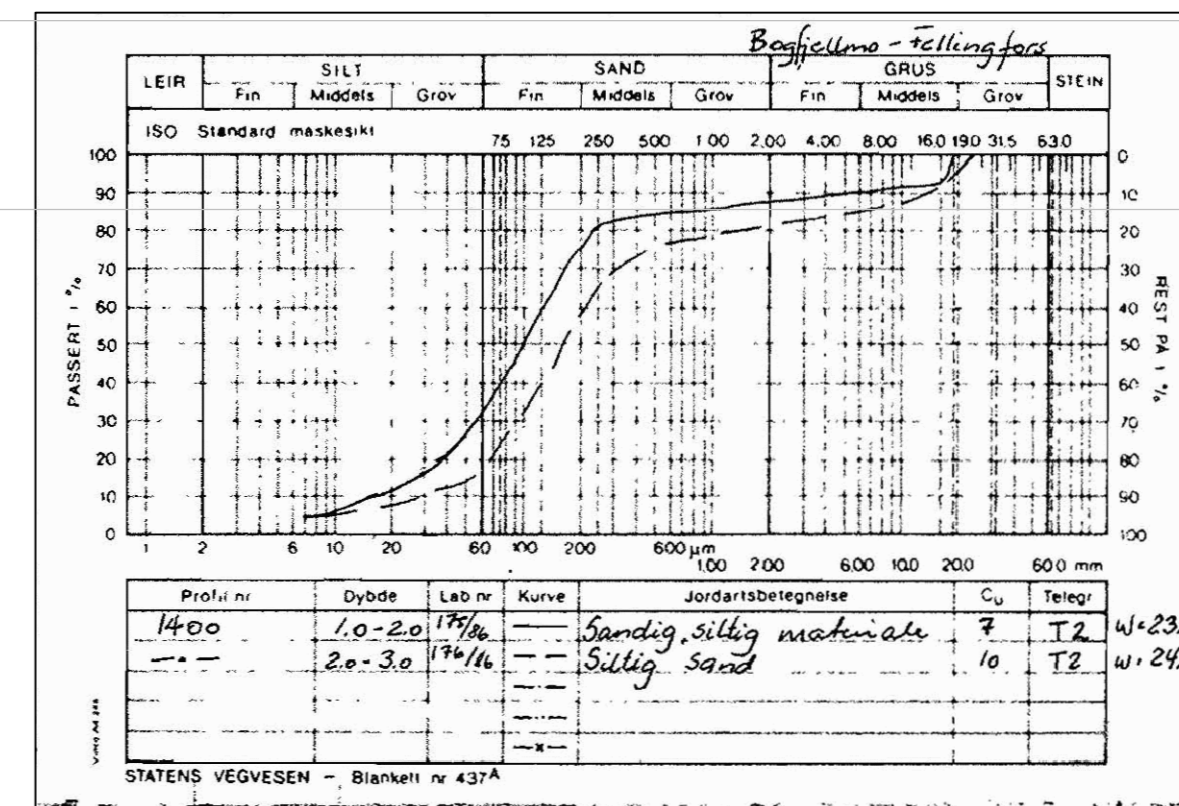 Bogfjellmo - Fellingfors
LEIR SILT SAND GRUS STEIN
Fin Middels Grov Fin Middels Grov Fin Middels Grov
ISO Standard maskesikt 75 125 250 500 1.00 2.00 4.00 8.00 16.0 19.0 31.5 63.0
100 0
90 10
80 20
70 30
60 40
50 50
40 60
30 70
20 80
10 90
0 100
PASSERT I %
REST PÅ I %
1 2 6 10 20 60 100 200 600 µm
1.00 2.00 6.00 10.0 20.0 60.0 mm
Profil nr Dybde Lab nr Kurve Jordartsbetegnelse Cu Telegr
1400 1.0-2.0 175/86 Sandig, siltig materiale 7 T2 W=23.
—"— 2.0-3.0 176/86 Siltig sand 10 T2 W=24.
STATENS VEGVESEN - Blankett nr 437A